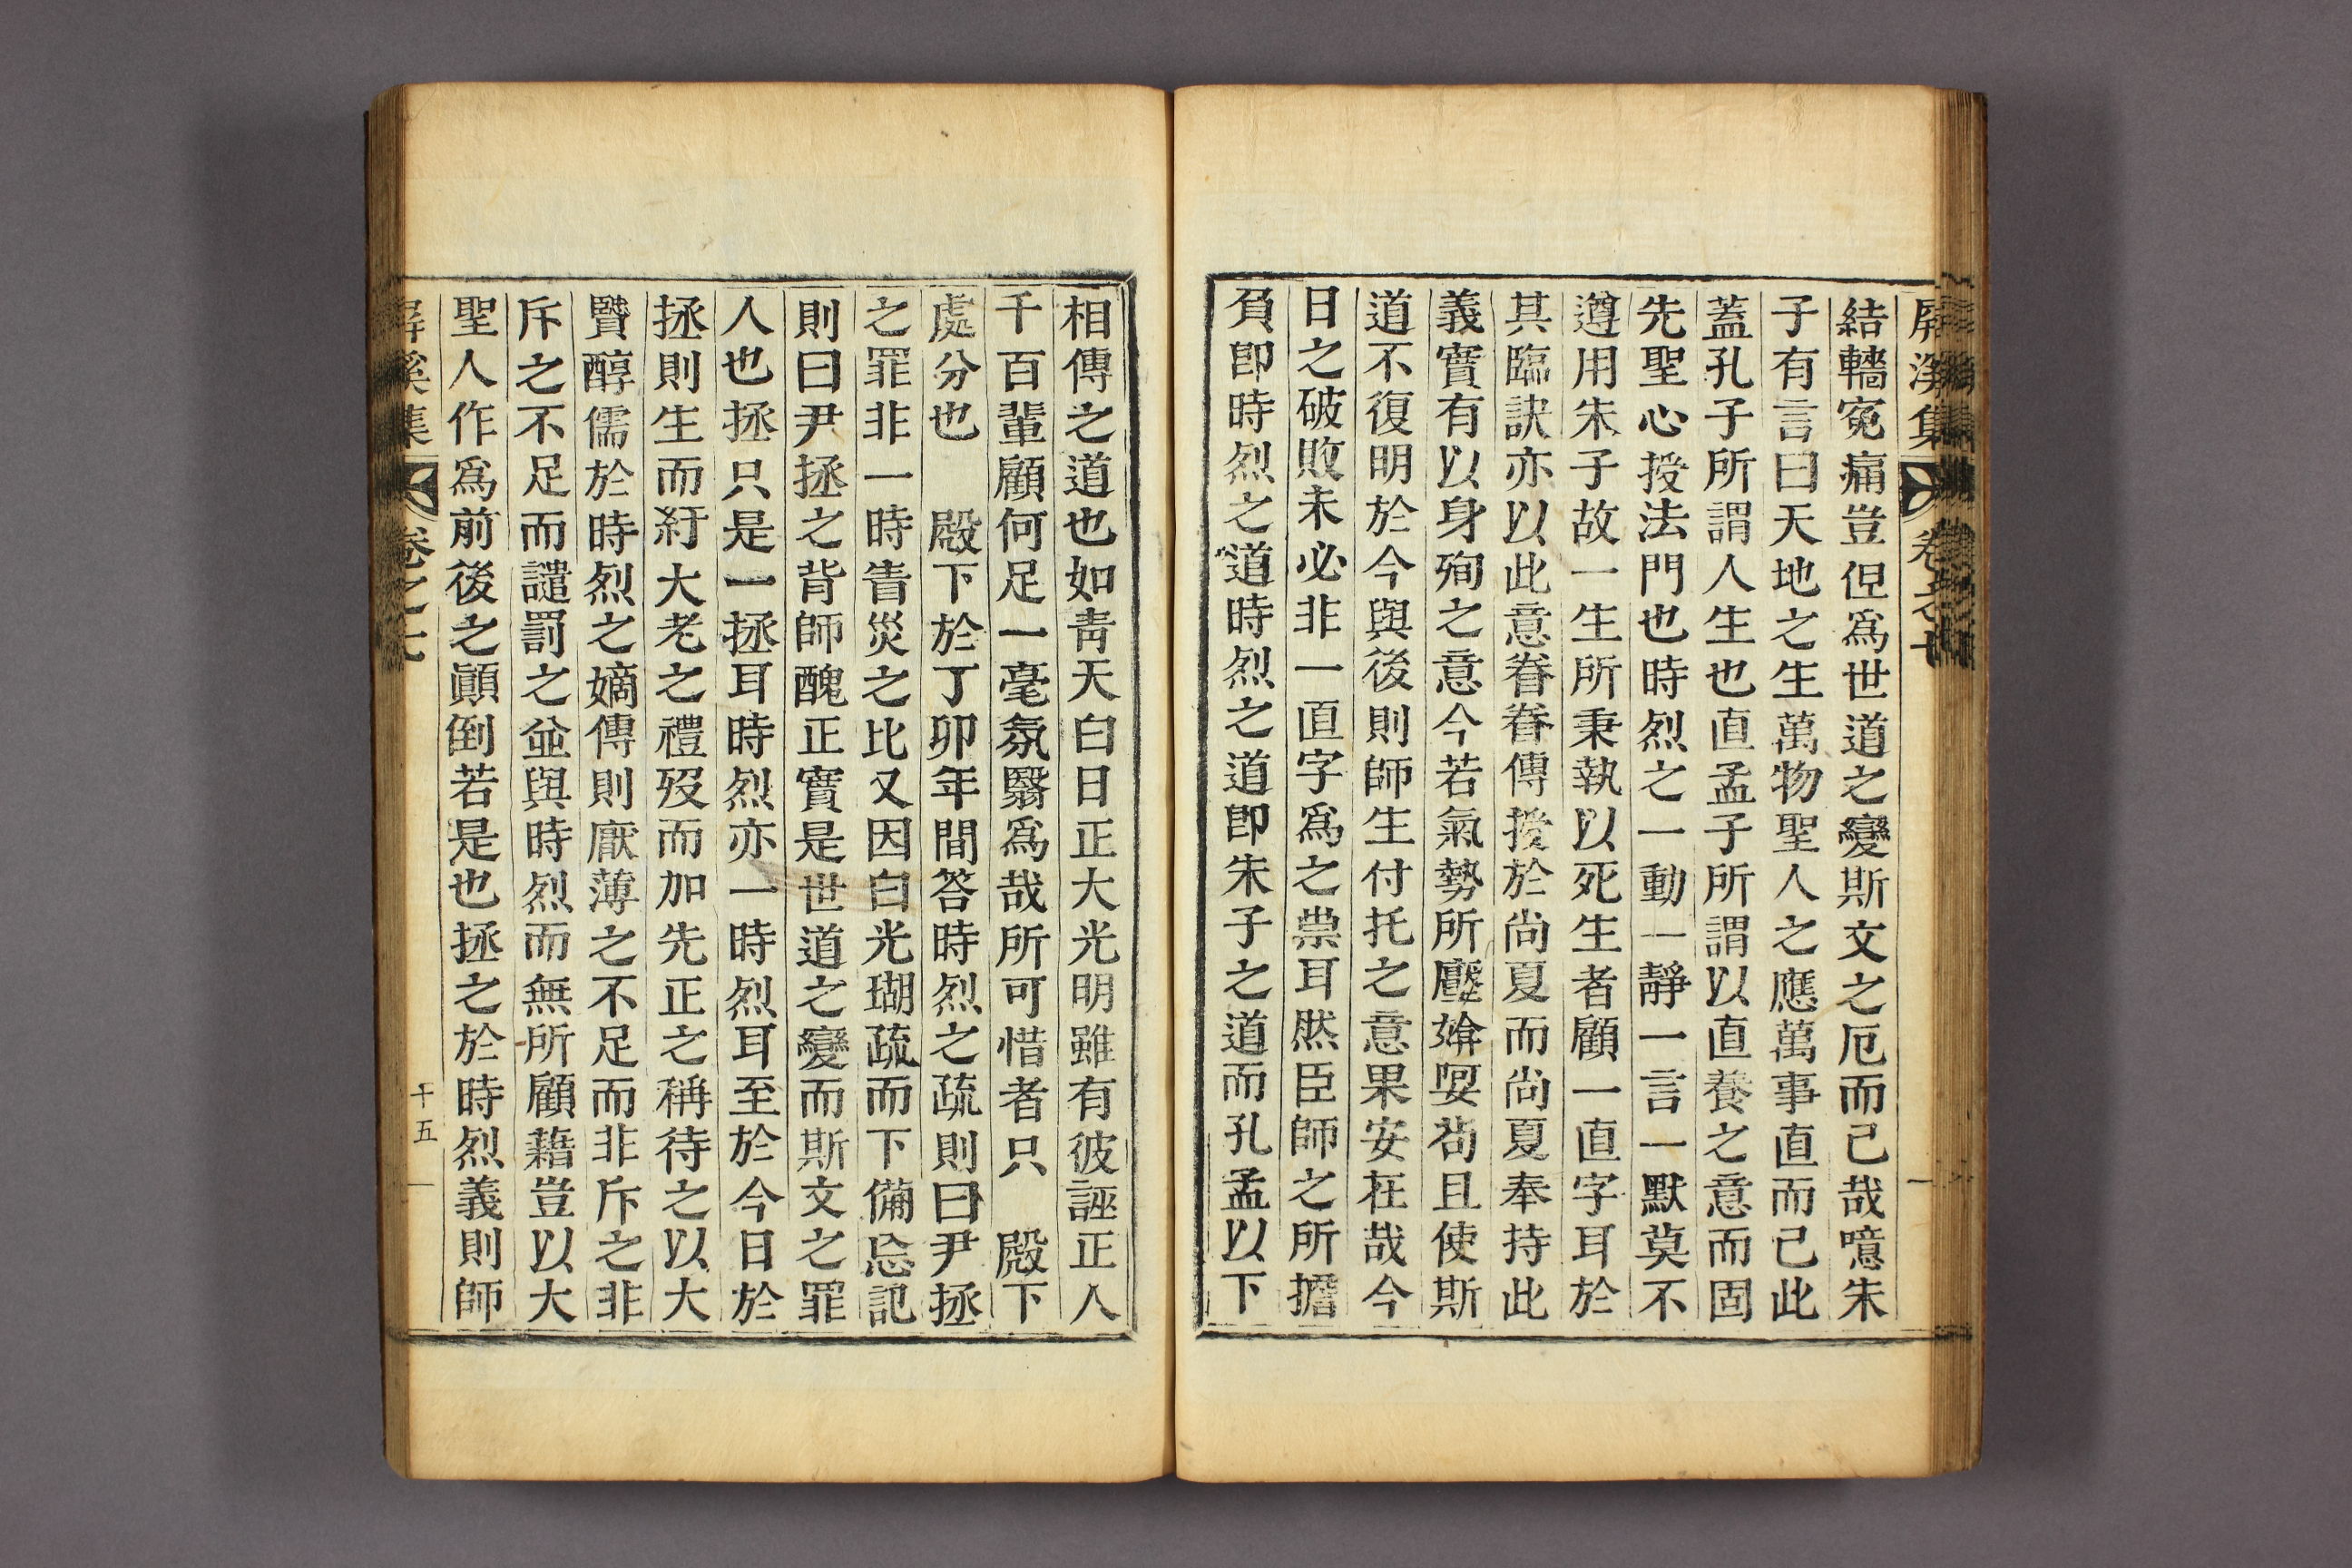 屛溪集 卷之七
結轖寃痛豈但爲世道之變斯文之厄而已哉噫朱
子有言曰天地之生萬物聖人之應萬事直而已此
蓋孔子所謂人生也直孟子所謂以直養之意而固
先聖心授法門也時烈之一動一靜一言一默莫不
遵用朱子故一生所秉執以死生者顧一直字耳於
其臨訣亦以此意眷眷傳授於尙夏而尙夏奉持此
義實有以身殉之意今若氣勢所壓媕婀苟且使斯
道不復明於今與後則師生付托之意果安在哉今
日之破敗未必非一直字爲之祟耳然臣師之所擔
負卽時烈之道時烈之道卽朱子之道而孔孟以下
相傳之道也如靑天白日正大光明雖有彼誣正人
千百輩顧何足一毫氛翳爲哉所可惜者只 殿下
處分也 殿下於丁卯年間答時烈之疏則曰尹拯
之罪非一時眚災之比又因白光瑚疏而下備忘記
則曰尹拯之背師醜正實是世道之變而斯文之罪
人也拯只是一拯耳時烈亦一時烈耳至於今日於
拯則生而紆大老之禮歿而加先正之稱待之以大
賢醇儒於時烈之嫡傳則厭薄之不足而非斥之非
斥之不足而譴罰之並與時烈而無所顧藉豈以大
聖人作爲前後之顚倒若是也拯之於時烈義則師
屛溪集 卷之七 十五